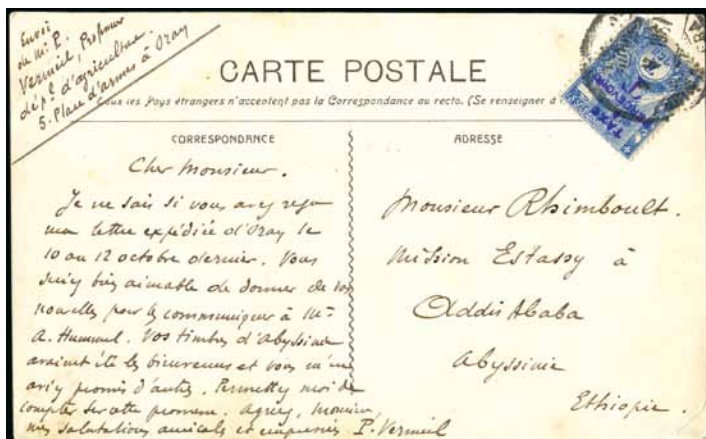 Envoi
de Mr P.
Vermeil, Professeur
dépal d'agriculture.
5. Place d'armes à Oray
CARTE POSTALE
Tous les Pays étrangers n'acceptent pas la Correspondance au recto. (Se renseigner à
CORRESPONDANCE
Cher Monsieur.
Je ne sais si vous avez reçu
ma lettre expédiée d'Oray le
10 au 12 octobre dernier. Vous
seriez bien aimable de donner de vos
nouvelles pour les communiquer à Mr
A. Hummel. Vos timbres d'Abyssinie
avaient été les bienvenus et vous m'en
aviez promis d'autres. Permettez moi de
compter sur cette promesse. Agréez, Monsieur,
mes salutations amicales et empressées P. Vermeil
ADRESSE
Monsieur Rhimboult.
Mission Estassy à
Addis Ababa
Abyssinie
Ethiopie.
TAXE